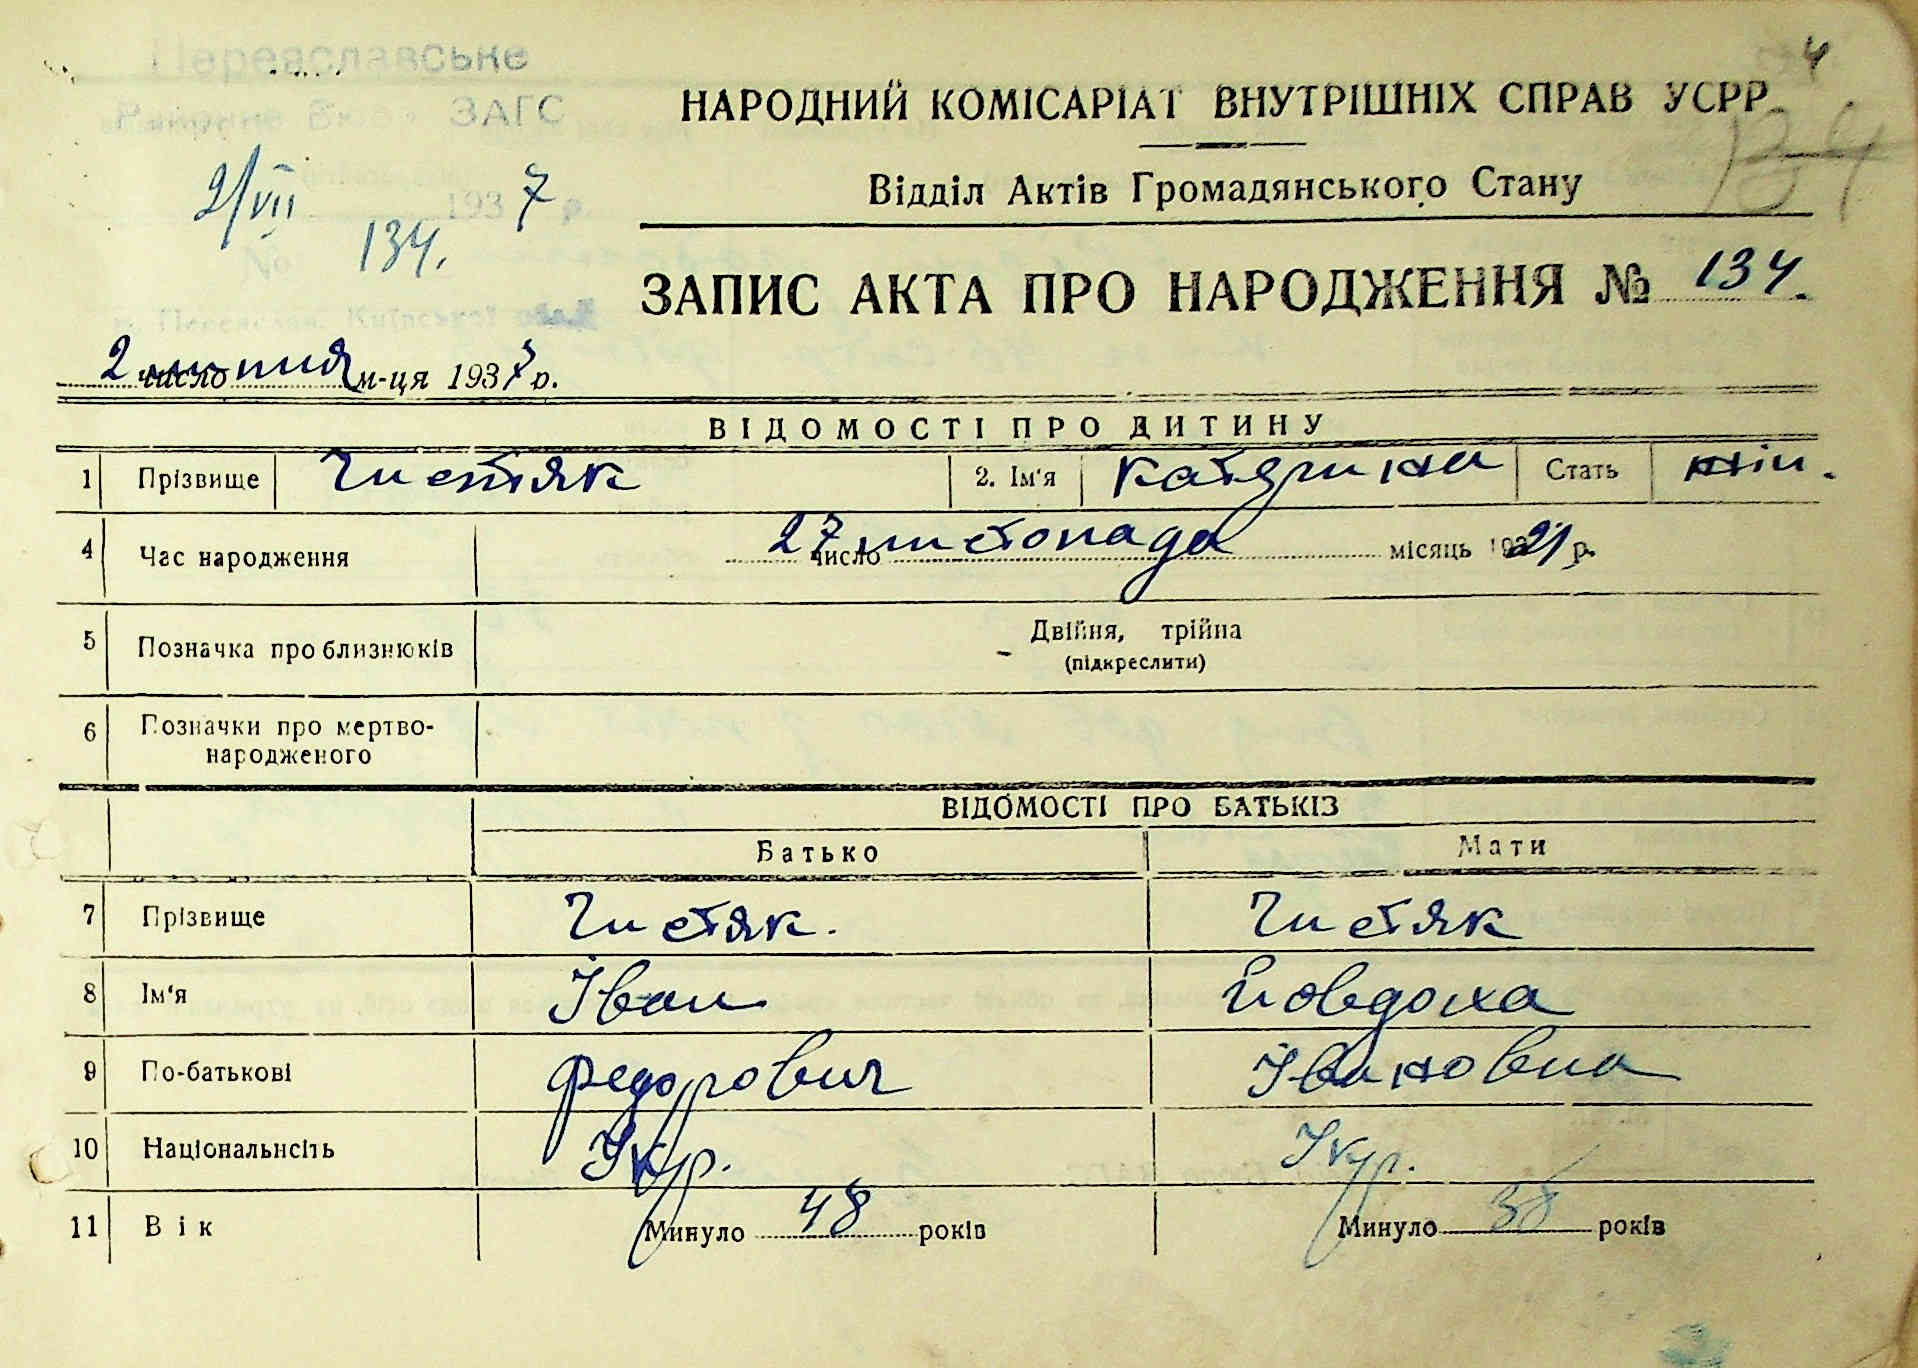 4
Переяславське
Районне Бюро ЗАГС
НАРОДНИЙ КОМІСАРІАТ ВНУТРІШНІХ СПРАВ УСРР
134
Відділ Актів Громадянського Стану
2/VII 1937 р.
№ 134.
м. Переяслав, Київської обл.
ЗАПИС АКТА ПРО НАРОДЖЕННЯ № 134.
2 число липня м-ця 1937 р.
ВІДОМОСТІ ПРО ДИТИНУ
1 Прізвище Чистяк 2. Ім'я Катерина Стать жін.
4 Час народження 27 число листопада місяць 1921 р.
5 Позначка про близнюків Двійня, трійна
(підкреслити)
6 Позначки про мертво-
народженого
ВІДОМОСТІ ПРО БАТЬКІВ
Батько Мати
7 Прізвище Чистяк. Чистяк
8 Ім'я Іван Йовдоха
9 По-батькові Федорович Івановна
10 Національність Укр. Укр.
11 Вік Минуло 48 років Минуло 38 років